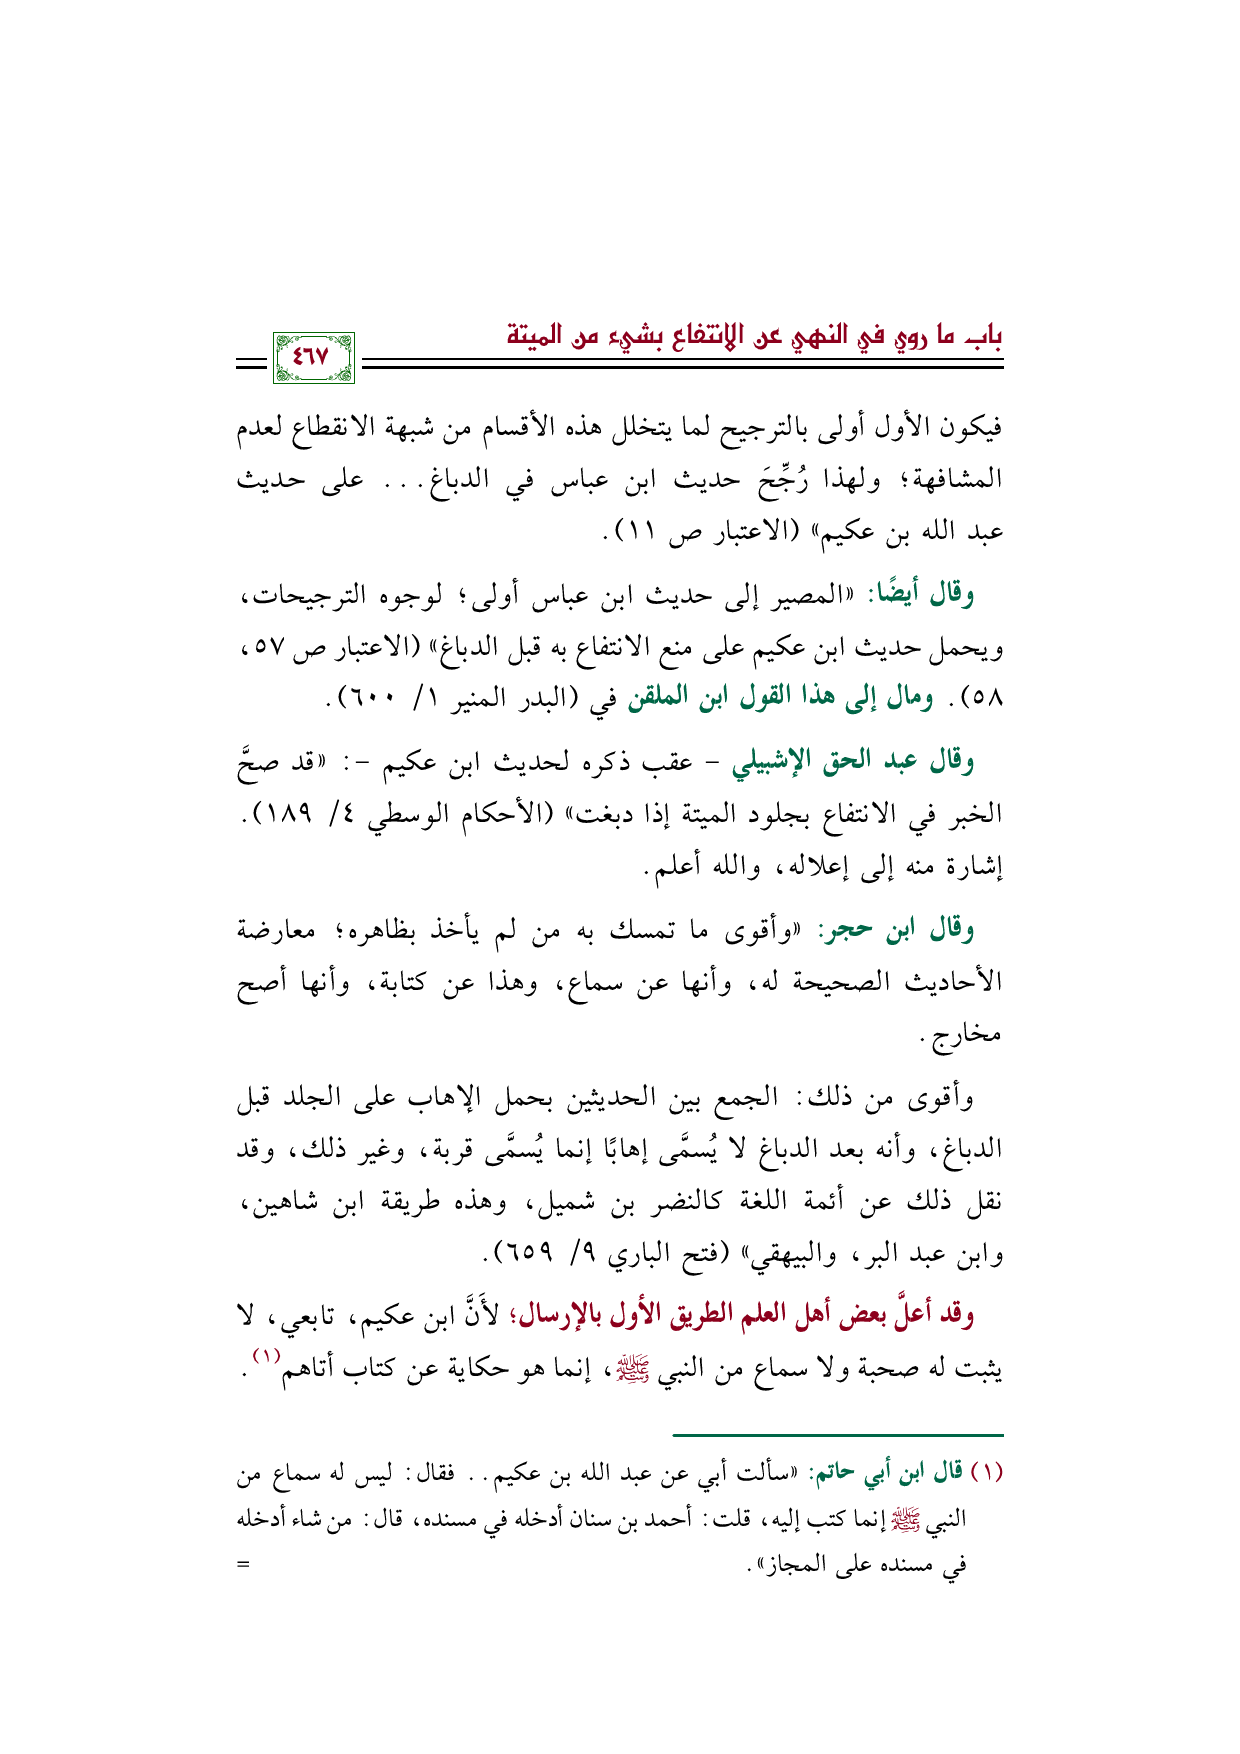 باب ما روي في النهي عن الانتفاع بشيء من الميتة
٤٦٧
فيكون الأول أولى بالترجيح لما يتخلل هذه الأقسام من شبهة الانقطاع لعدم
المشافهة؛ ولهذا رُجِّحَ حديث ابن عباس في الدباغ... على حديث
عبد الله بن عكيم» (الاعتبار ص ١١).
وقال أيضًا: «المصير إلى حديث ابن عباس أولى؛ لوجوه الترجيحات،
ويحمل حديث ابن عكيم على منع الانتفاع به قبل الدباغ» (الاعتبار ص ٥٧،
٥٨). ومال إلى هذا القول ابن الملقن في (البدر المنير ١/ ٦٠٠).
وقال عبد الحق الإشبيلي - عقب ذكره لحديث ابن عكيم -: «قد صحَّ
الخبر في الانتفاع بجلود الميتة إذا دبغت» (الأحكام الوسطي ٤/ ١٨٩).
إشارة منه إلى إعلاله، والله أعلم.
وقال ابن حجر: «وأقوى ما تمسك به من لم يأخذ بظاهره؛ معارضة
الأحاديث الصحيحة له، وأنها عن سماع، وهذا عن كتابة، وأنها أصح
مخارج.
وأقوى من ذلك: الجمع بين الحديثين بحمل الإهاب على الجلد قبل
الدباغ، وأنه بعد الدباغ لا يُسمَّى إهابًا إنما يُسمَّى قربة، وغير ذلك، وقد
نقل ذلك عن أئمة اللغة كالنضر بن شميل، وهذه طريقة ابن شاهين،
وابن عبد البر، والبيهقي» (فتح الباري ٩/ ٦٥٩).
وقد أعلَّ بعض أهل العلم الطريق الأول بالإرسال؛ لأَنَّ ابن عكيم، تابعي، لا
يثبت له صحبة ولا سماع من النبي ﷺ، إنما هو حكاية عن كتاب أتاهم(١).
(١) قال ابن أبي حاتم: «سألت أبي عن عبد الله بن عكيم.. فقال: ليس له سماع من
النبي ﷺ إنما كتب إليه، قلت: أحمد بن سنان أدخله في مسنده، قال: من شاء أدخله
في مسنده على المجاز». =